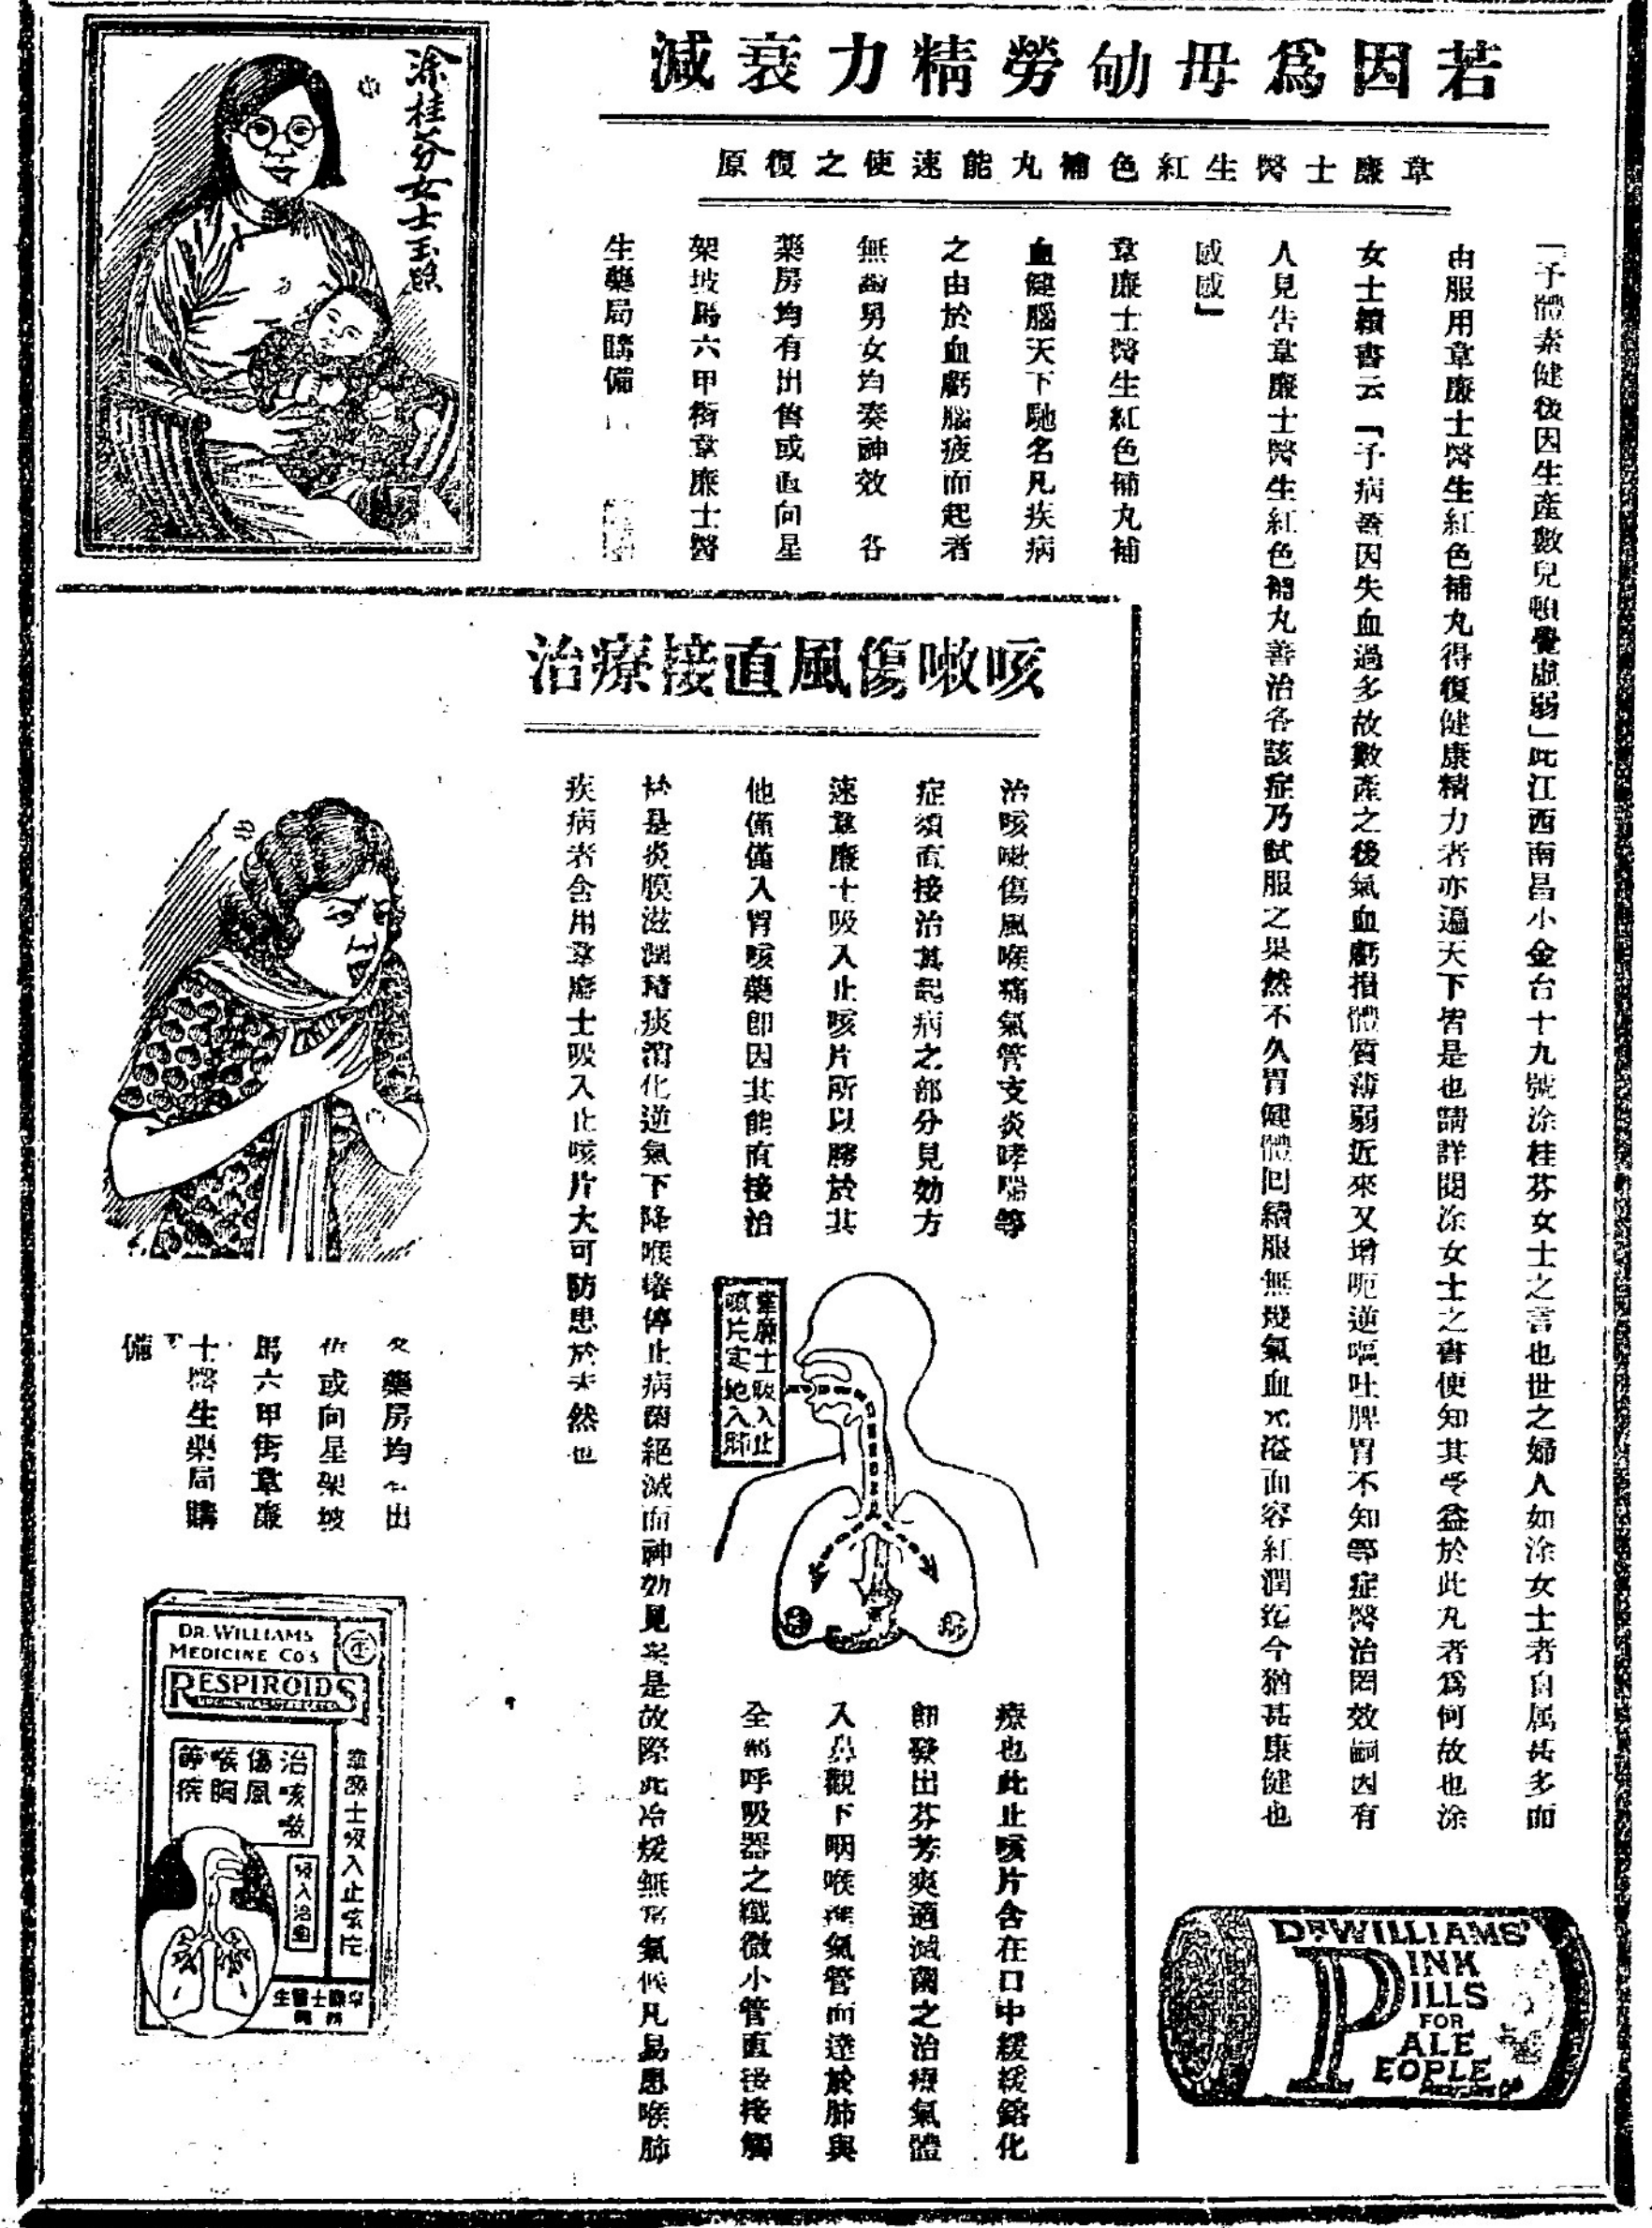 若因爲毋劬勞精力衰減
韋廉士醫生紅色補丸能速使之復原
涂桂芬女士玉照
「予體素健後因生產數兒頓覺虛弱」此江西南昌小金台十九號涂桂芬女士之言也世之婦人如涂女士者自属甚多而
由服用韋廉士醫生紅色補丸得復健康精力者亦遍天下皆是也請詳閱涂女士之書便知其受益於此丸者爲何故也涂
女士續書云「予病蓋因失血過多故數產之後氣血虧損體質薄弱近來又增呃逆嘔吐脾胃不知等症醫治罔效嗣因有
人見告韋廉士醫生紅色補丸善治各該症乃試服之果然不久胃健體回續服無幾氣血充溢面容紅潤迄今猶甚康健也
感感」
韋廉士醫生紅色補丸補
血健腦天下馳名凡疾病
之由於血虧腦疲而起者
無論男女均奏神效 各
藥房均有出售或直向星
架坡馬六甲街韋廉士醫
生藥局購備
DR WILLIAMS'
PINK
PILLS
FOR
PALE
PEOPLE
咳嗽傷風直接療治
治咳嗽傷風喉痛氣管支炎哮喘等
症須直接治其起病之部分見効方
速韋廉士吸入止咳片所以勝於其
他僅僅入胃咳藥卽因其能直接治
療也此止咳片含在口中緩緩鎔化
卽發出芬芳爽適滅菌之治療氣體
入鼻觀下咽喉經氣管而達於肺與
全部呼吸器之纖微小管直接接觸
於是炎膜滋潤積痰消化逆氣下降喉癢停止病菌絕滅而神効見矣是故際此冷煖無常氣候凡易患喉肺
疾病者含用韋廉士吸入止咳片大可防患於未然也
韋廉士吸入止
咳片実地入肺
肺
肺
各藥房均有出
售或向星架坡
馬六甲街韋廉
士醫生藥局購
備
DR. WILLIAMS
MEDICINE CO'S
RESPIROIDS
韋廉士吸入止咳片
治咳嗽
傷風
喉胸
等疾
吸入治理
韋廉士醫生
藥局